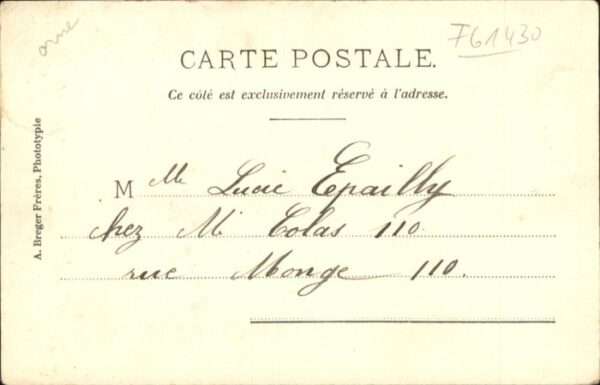 orne
F61430
CARTE POSTALE.
Ce côté est exclusivement réservé à l'adresse.
A. Breger Frères, Phototypie
M lle Lucie Epailly
chez M. Colas 110
rue Monge 110.